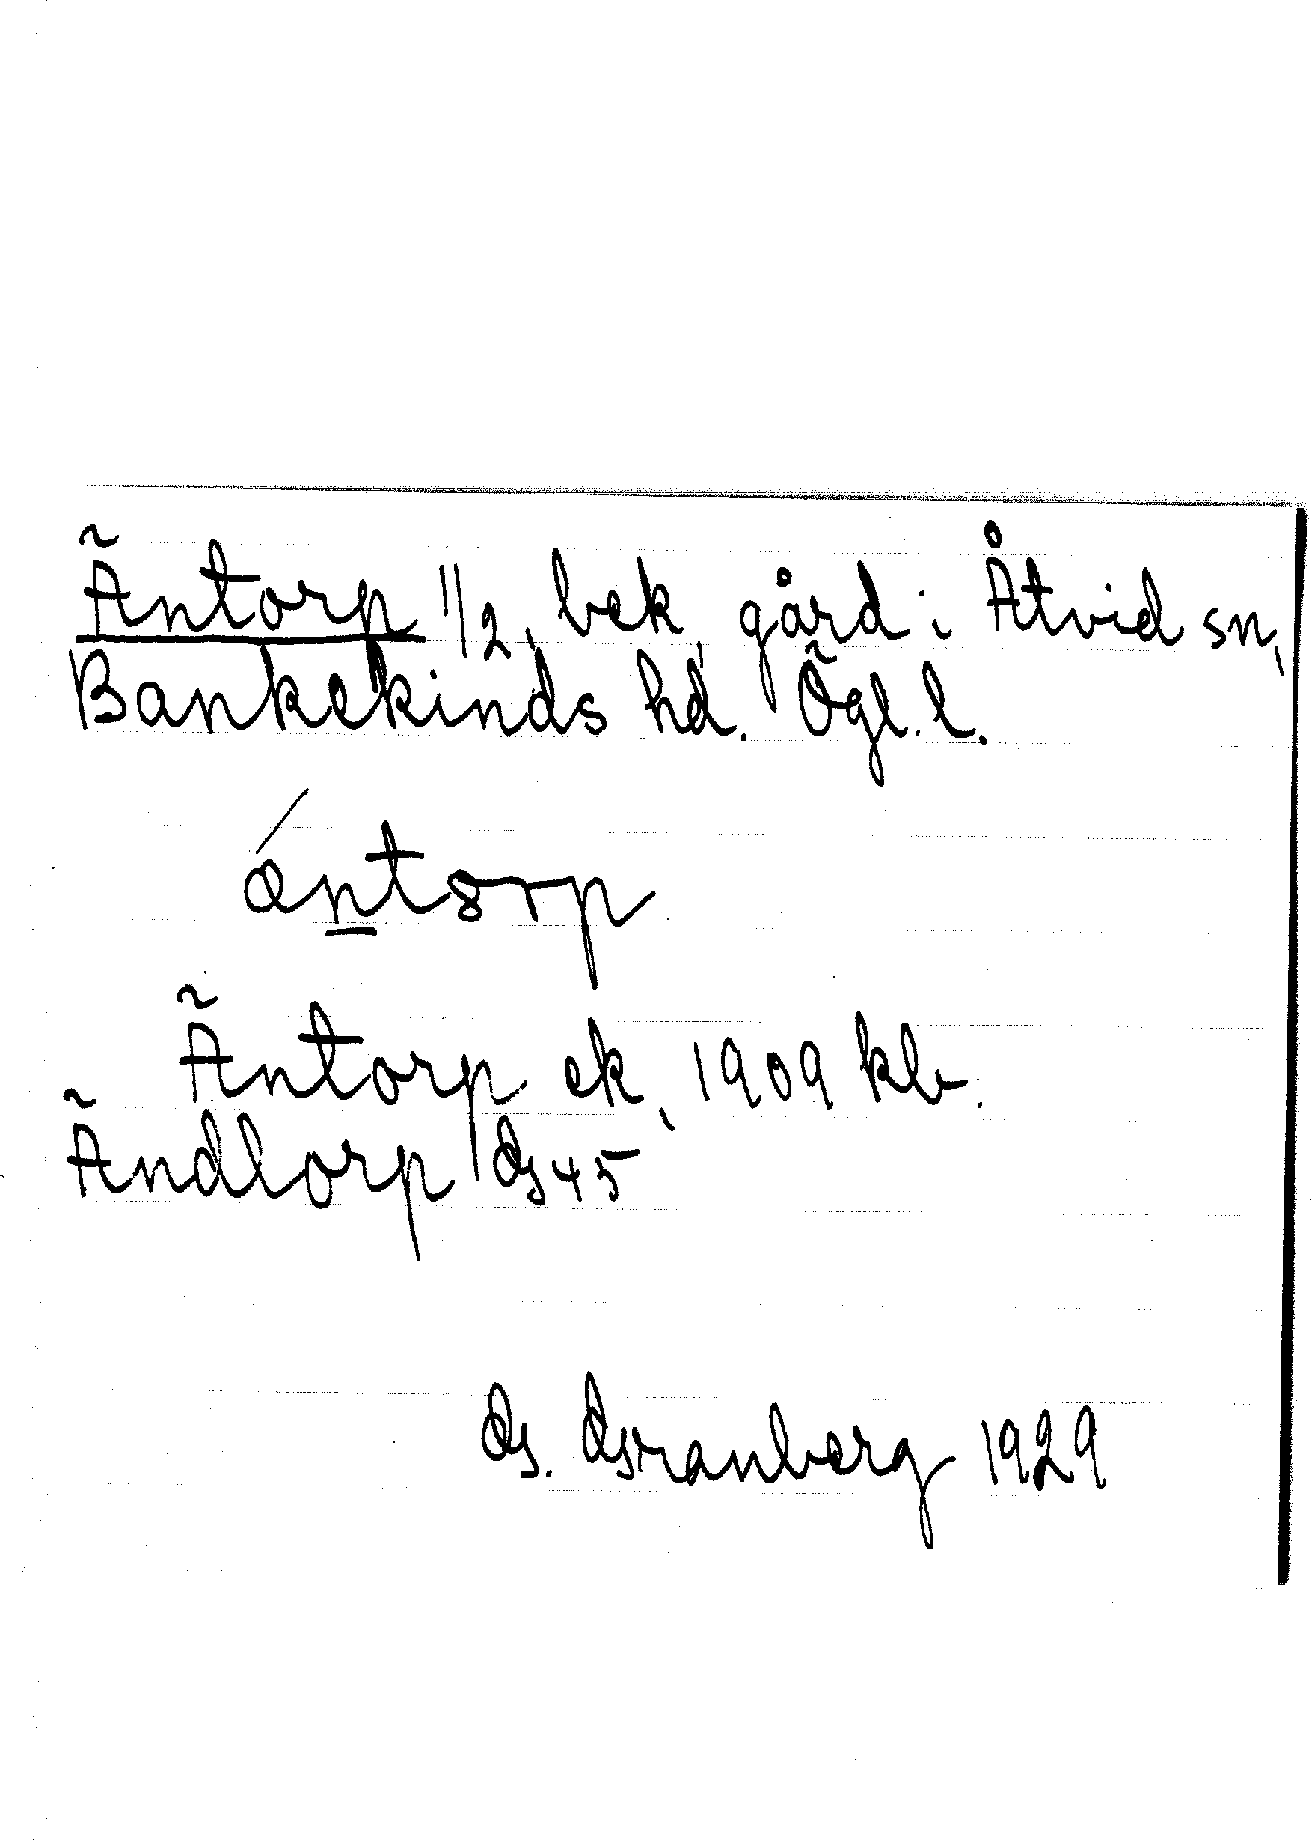 Äntorp 1/2, bek. gård i Åtvid sn,
Bankekinds hd. Ögl. l.
äntorp
Äntorp ek. 1909 kb.
Ändtorp Gs 45
G. Granberg 1929